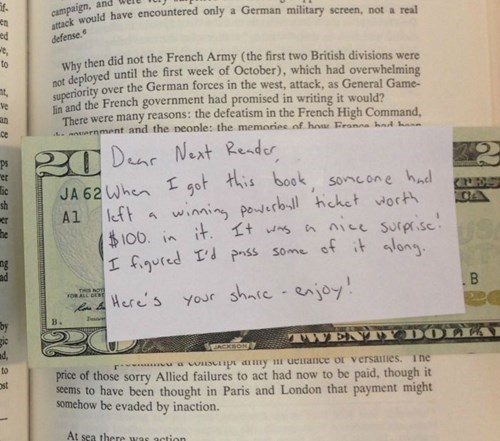 campaign, and
attack would have encountered only a German military screen, not a real
defense.⁶
Why then did not the French Army (the first two British divisions were
not deployed until the first week of October), which had overwhelming
superiority over the German forces in the west, attack, as General Game-
lin and the French government had promised in writing it would?
There were many reasons: the defeatism in the French High Command,
government and the people; the memories of how France had been
20
JA 62
A1
Dear Next Reader,
When I got this book, someone had
left a winning powerball ticket worth
$100. in it. It was a nice surprise!
I figured I'd pass some of it along.
Here's your share - enjoy!
B
JACKSON
TWENTY DOLLA
20
conscript army in defiance of Versailles. The
price of those sorry Allied failures to act had now to be paid, though it
seems to have been thought in Paris and London that payment might
somehow be evaded by inaction.
At sea there was action